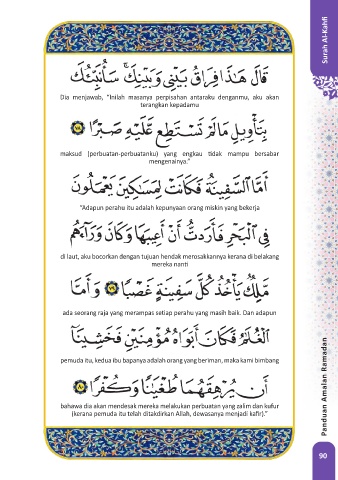 Surah Al-Kahfi
قَالَ هَـٰذَا فِرَاقُ بَيْنِي وَبَيْنِكَ ۚ سَأُنَبِّئُكَ
Dia menjawab, "Inilah masanya perpisahan antaraku denganmu, aku akan
terangkan kepadamu
بِتَأْوِيلِ مَا لَمْ تَسْتَطِع عَّلَيْهِ صَبْرًا ۝٧٨
maksud (perbuatan-perbuatanku) yang engkau tidak mampu bersabar
mengenainya."
أَمَّا ٱلسَّفِينَةُ فَكَانَتْ لِمَسَـٰكِينَ يَعْمَلُونَ
"Adapun perahu itu adalah kepunyaan orang miskin yang bekerja
فِي ٱلْبَحْرِ فَأَرَدتُّ أَنْ أَعِيبَهَا وَكَانَ وَرَآءَهُم
di laut, aku bocorkan dengan tujuan hendak merosakkannya kerana di belakang
mereka nanti
مَّلِكٌ يَأْخُذُ كُلَّ سَفِينَةٍ غَصْبًا ۝٧٩ وَأَمَّا
ada seorang raja yang merampas setiap perahu yang masih baik. Dan adapun
ٱلْغُلَـٰمُ فَكَانَ أَبَوَاهُ مُؤْمِنَيْنِ فَخَشِينَآ
pemuda itu, kedua ibu bapanya adalah orang yang beriman, maka kami bimbang
أَن يُرْهِقَهُمَا طُغْيَـٰنًا وَكُفْرًا ۝٨٠
bahawa dia akan mendesak mereka melakukan perbuatan yang zalim dan kufur
(kerana pemuda itu telah ditakdirkan Allah, dewasanya menjadi kafir)."
Panduan Amalan Ramadan
90